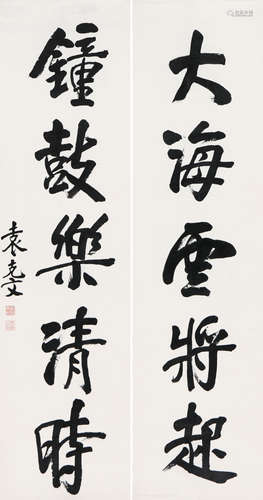 大海雲將起
鐘鼓樂清時
袁克文